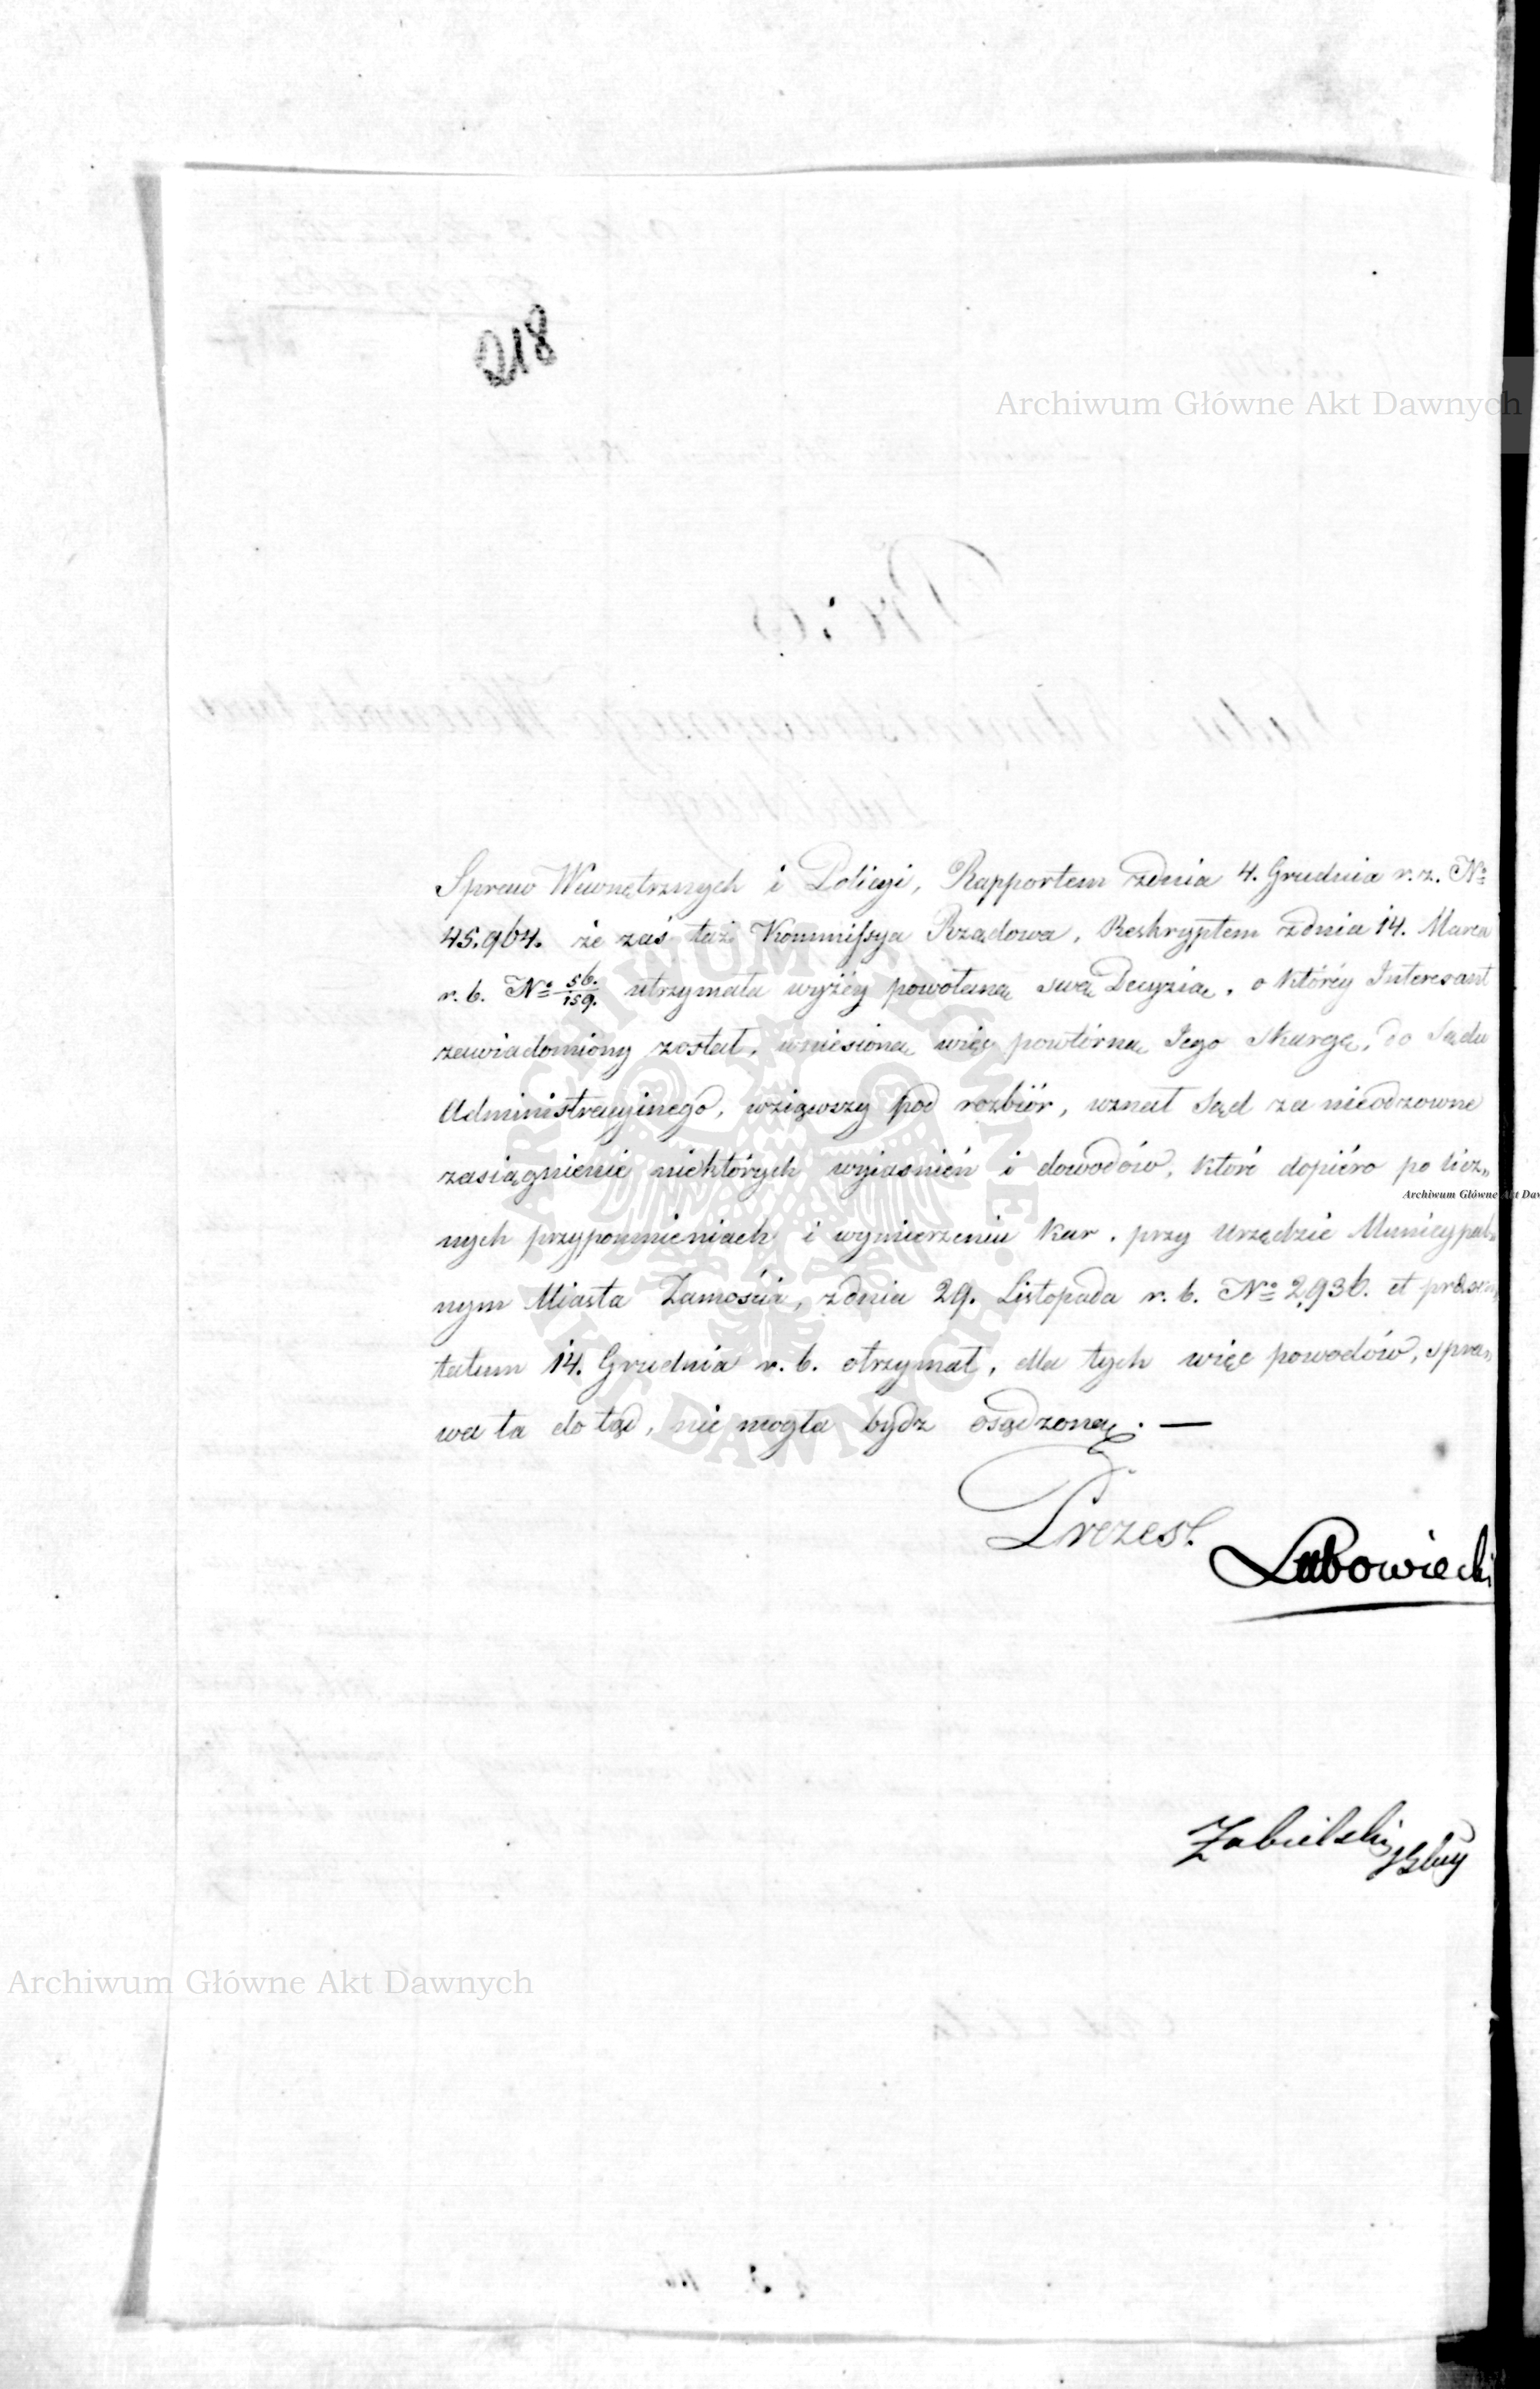 218
Archiwum Główne Akt Dawnych
Spraw Wewnętrznych i Policyi, Rapportem zdnia 4. Grudnia r. z. No
45.964. że zaś taż Kommissya Rządowa, Reskryptem zdnia 14. Marca
r. b. No 56./159. utrzymała wyżéy powołaną swą Decyzią, o któréy Interesant
zawiadomiony został, wniesioną więc powtórną Jego skargę, do Sądu
Administracyinego, wziąwszy pod rozbiór, uznał Sąd za nieodzowne
zasiągnienie niektórych wyiaśnień i dowodów, które dopiéro po licz„
nych przypomnieniach i wymierzeniu kar, przy Urzędzie Municypal„
nym Miasta Zamościa, zdnia 29. Listopada r. b. No 2936. et præsen„
tatum 14. Grudnia r. b. otrzymał, dla tych więc powodów, spra„
wa ta do tąd, nie mogła bydz osądzoną. —
Prezes
Lubowiecki
Zabielski
Archiwum Główne Akt Daw
ARCHIWUM GŁÓWNE AKT DAWNYCH
Archiwum Główne Akt Dawnych